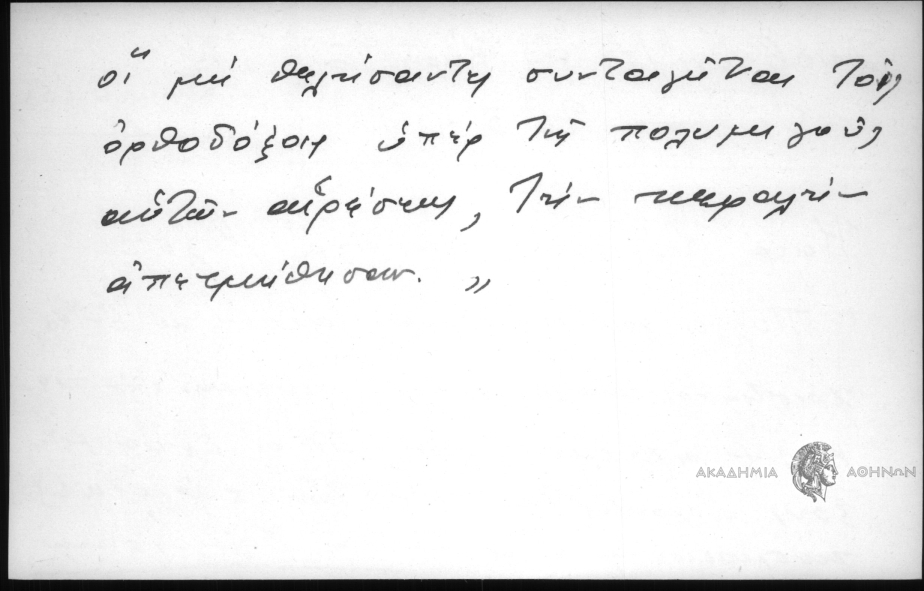 οἵ μή θελήσαντες συνταγῆναι τοῖς
ὀρθοδόξοις ὑπέρ τῆς πολυμιγοῦς
αὐτῶν αἱρέσεως, τήν κεφαλήν
ἀπετμήθησαν. „
ΑΚΑΔΗΜΙΑ ΑΘΗΝΩΝ